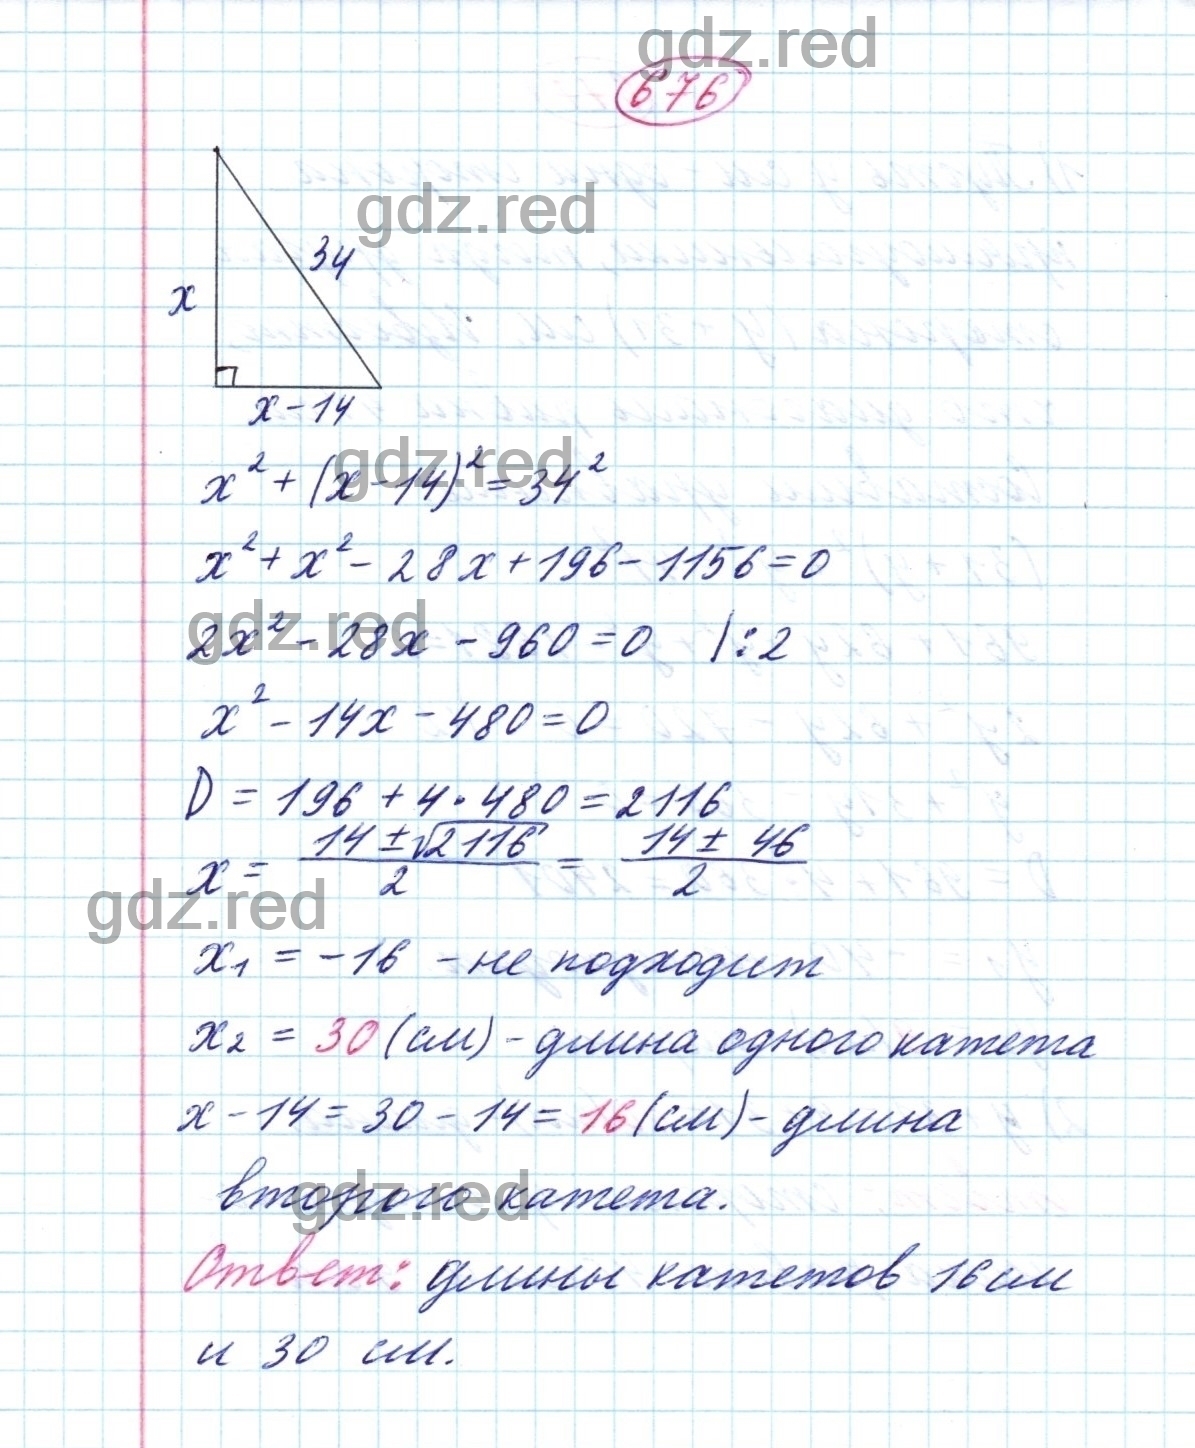 gdz.red
676
gdz.red
34
x
x-14
gdz.red
x² + (x-14)² = 34²
x² + x² - 28x + 196 - 1156 = 0
gdz.red
2x² - 28x - 960 = 0 |:2
x² - 14x - 480 = 0
D = 196 + 4·480 = 2116
x = (14 ± √2116)/2 = (14 ± 46)/2
gdz.red
x₁ = -16 - не подходит
x₂ = 30 (см) - длина одного катета
x - 14 = 30 - 14 = 16 (см) - длина
gdz.red
второго катета.
Ответ: длины катетов 16 см
и 30 см.